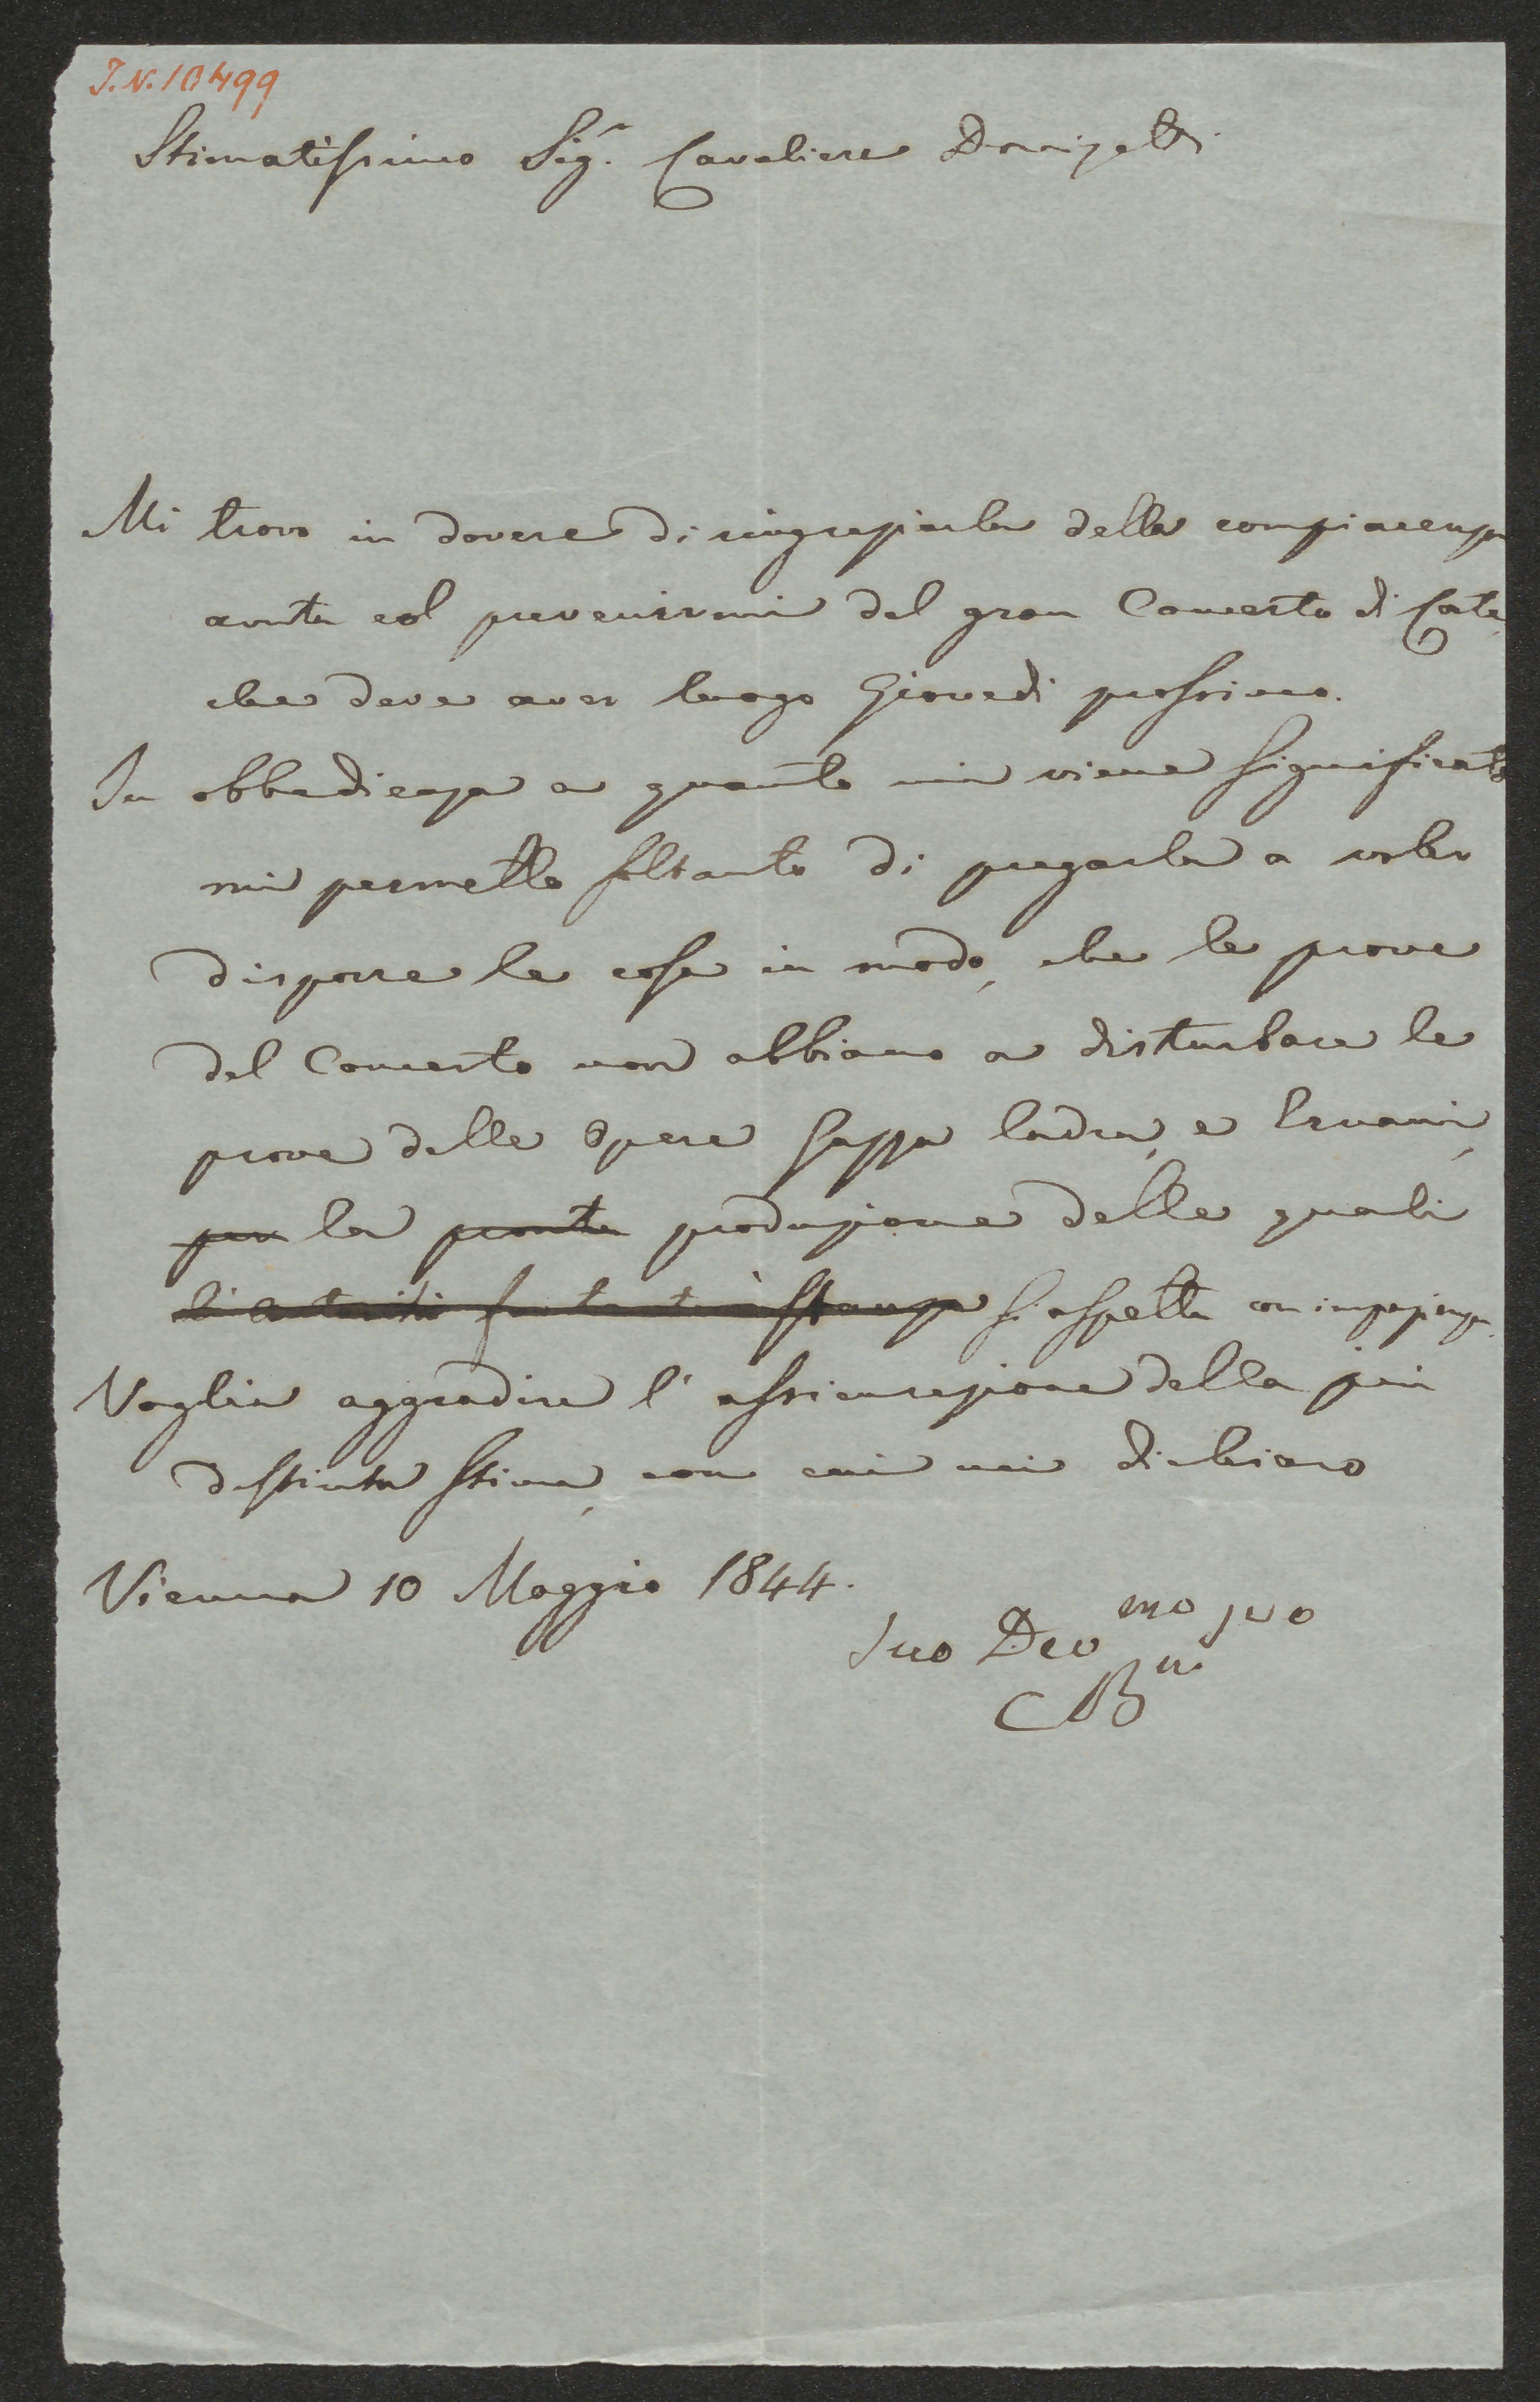 J.N. 10499
Stimatissimo Sig.r Cavaliere Donizetti.
Mi trovo in dovere di ringraziarla della compiacenza
avuta col prevenirmi del gran Concerto di Corte,
che deve aver luogo Giovedì prossimo.
In obbedienza a quanto mi viene significato
mi permetto soltanto di pregarla a voler
disporre le cose in modo, che le prove
del Concerto non abbiano a disturbare le
prove delle Opere Gazza ladra, e Ernani,
per la pronta produzione delle quali
si aspetta con impazienza.
Voglia aggradire l'assicurazione della più
distinta stima, con cui mi dichiaro
Vienna 10 Maggio 1844.
Suo Devmo svo
CBni